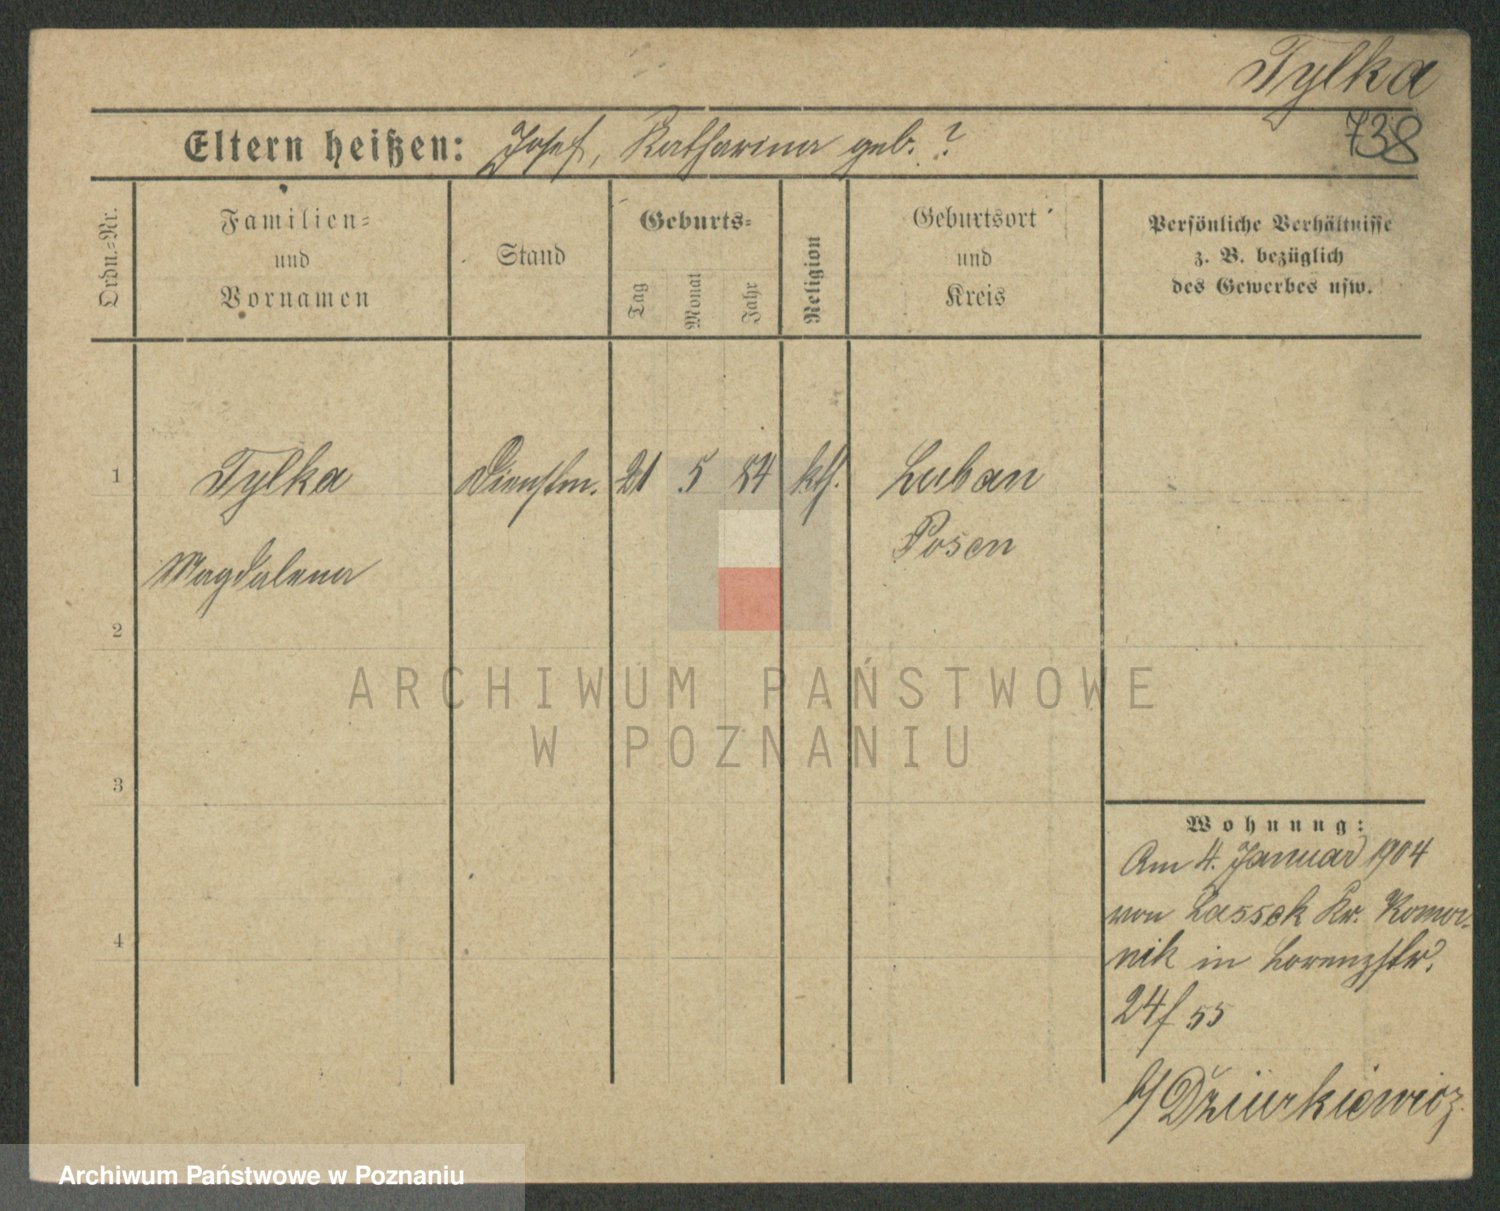 Tylka
738
Eltern heißen: Josef, Katharina geb. ?
Ordn.=Nr.
Familien=
und
Vornamen
Stand
Geburts=
Tag
Monat
Jahr
Religion
Geburtsort
und
Kreis
Persönliche Verhältnisse
z. B. bezüglich
des Gewerbes usw.
1 Tylka Dienstm. 21 5 84 kth. Luban
Posen
Magdalena
2
3
4
Wohnung:
Am 4. Januar 1904
von Lassek Kr. Komor-
nik in Lorenzstr.
24 f 55
b/ Dziurkiewicz
ARCHIWUM PAŃSTWOWE
W POZNANIU
Archiwum Państwowe w Poznaniu